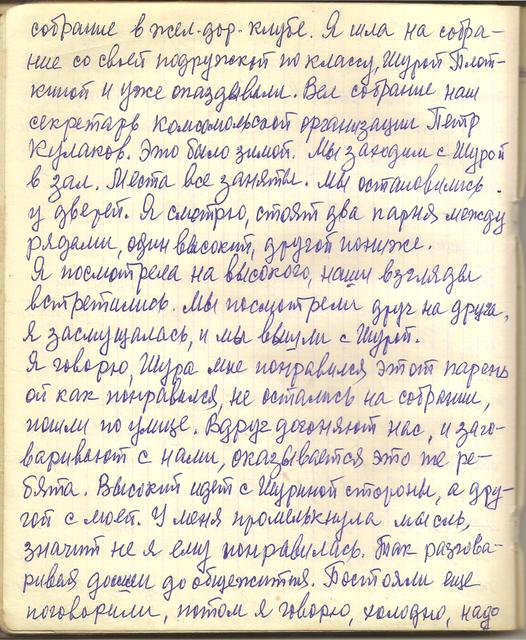 собрание в жел-дор-клубе. Я шла на собра-
ние со своей подружкой по классу, Шурой Плот-
киной и уже опаздывали. Вел собрание наш
секретарь комсомольской организации Петр
Кулаков. Это было зимой. Мы заходим с Шурой
в зал. Места все заняты. Мы остановились
у дверей. Я смотрю, стоят два парня между
рядами, один высокий, другой пониже.
Я посмотрела на высокого, наши взгляды
встретились. Мы посмотрели друг на друга,
Я засмущалась, и мы вышли с Шурой.
Я говорю, Шура мне понравился этот парень
ой как понравился, не остались на собрании,
пошли по улице. Вдруг догоняют нас, и заго-
варивают с нами, оказывается это те ре-
бята. Высокий идет с Шуриной стороны, а дру-
гой с моей. У меня промелькнула мысль,
значит не я ему понравилась. Так разгова-
ривая дошли до общежития. Постояли еще
поговорили, потом я говорю, холодно, надо